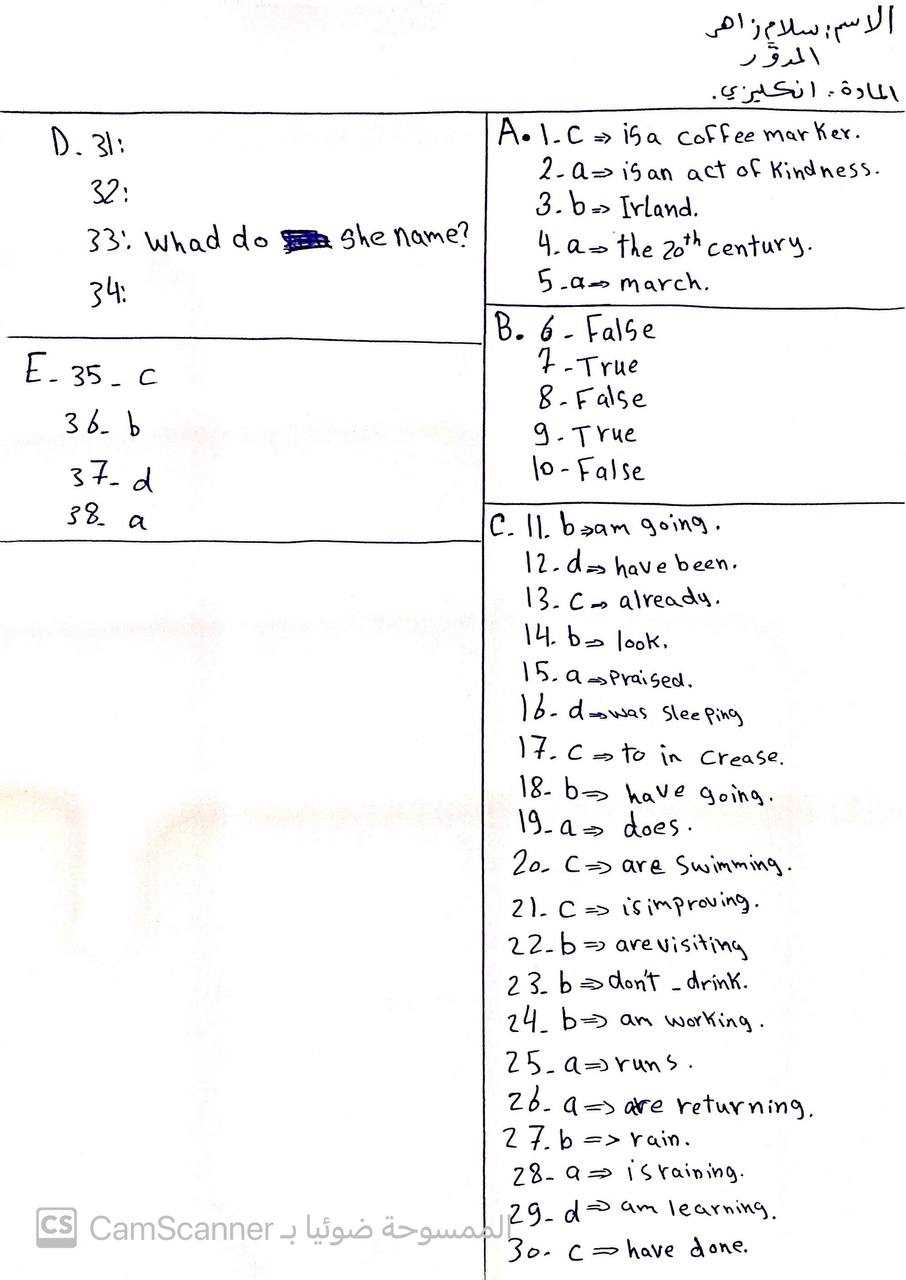 الاسم: سلام زاهر
المدوّر
المادة: انكليزي.
A. 1-C => is a coffee marker.
2-a => is an act of kindness.
3. b => Irland.
4. a => the 20th century.
5-a => march.
B. 6 - False
7 - True
8 - False
9 - True
10 - False
C. 11. b => am going.
12. d => have been.
13. C → already.
14. b => look.
15. a => Praised.
16- d => was sleeping
17. C => to in crease.
18- b => have going.
19- a => does.
20- C => are swimming.
21- C => is improving.
22- b => are visiting
23- b => don't - drink.
24- b => am working.
25- a => runs.
26- a => are returning.
27. b => rain.
28- a => is raining.
29- d => am learning.
30- C => have done.
D. 31:
32:
33: Whad do she name?
34:
E- 35- C
36- b
37- d
38- a
CS CamScanner الممسوحة ضوئيا بـ